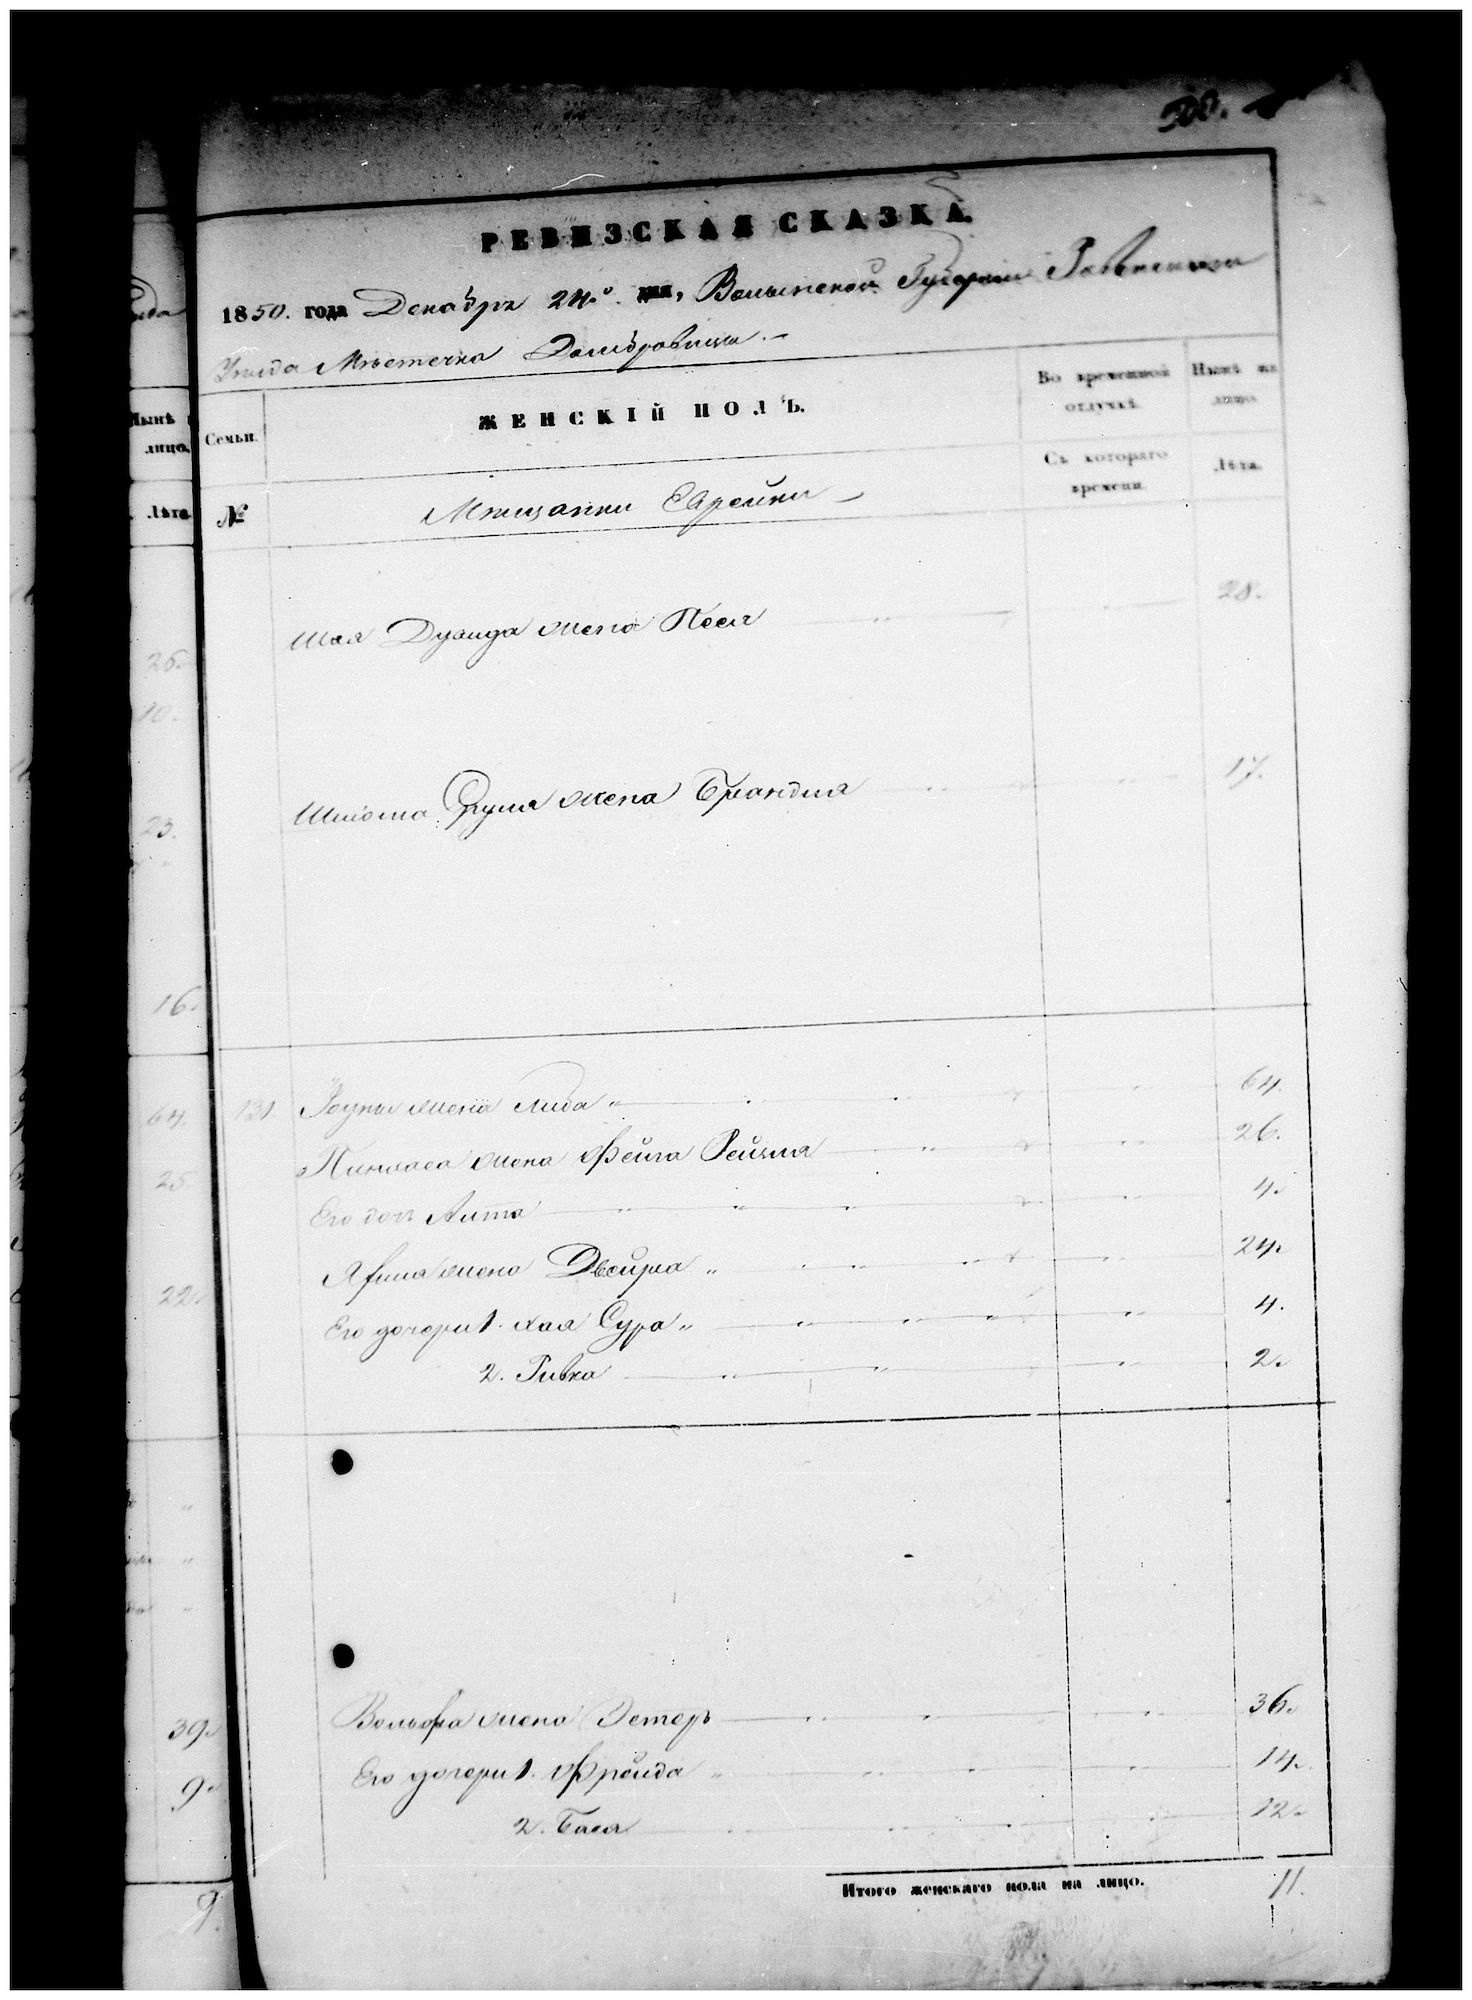 500.
РЕВИЗСКАЯ СКАЗКА.
1850. года Декабря 24го дня, Волынской Губернии Ровенскаго
Уезда Местечка Домбровицы
Семьи.
ЖЕНСКІЙ ПОЛЪ.
Во временной отлучкѣ.
Нынѣ на лицо.
№
Мещанки Еврейки
Съ котораго времени.
Лѣта.
Шая жена Песя 28.
жена Брандля 17.
131. жена Либа 64.
Пинхаса жена Фейга Рейзля 26.
Его дочь 4.
жена Двейра 24.
Его дочери 1. Хая Сура 4.
2. Ривка 2.
Вольфа жена Эстеръ 36.
Его дочери 1. Фрейда 14.
2. Бася 12.
Итого женскаго пола на лицо. 11.
Нынѣ
лицо.
Лѣта
26.
10.
23.
16.
64.
25.
22.
39.
9.
9.